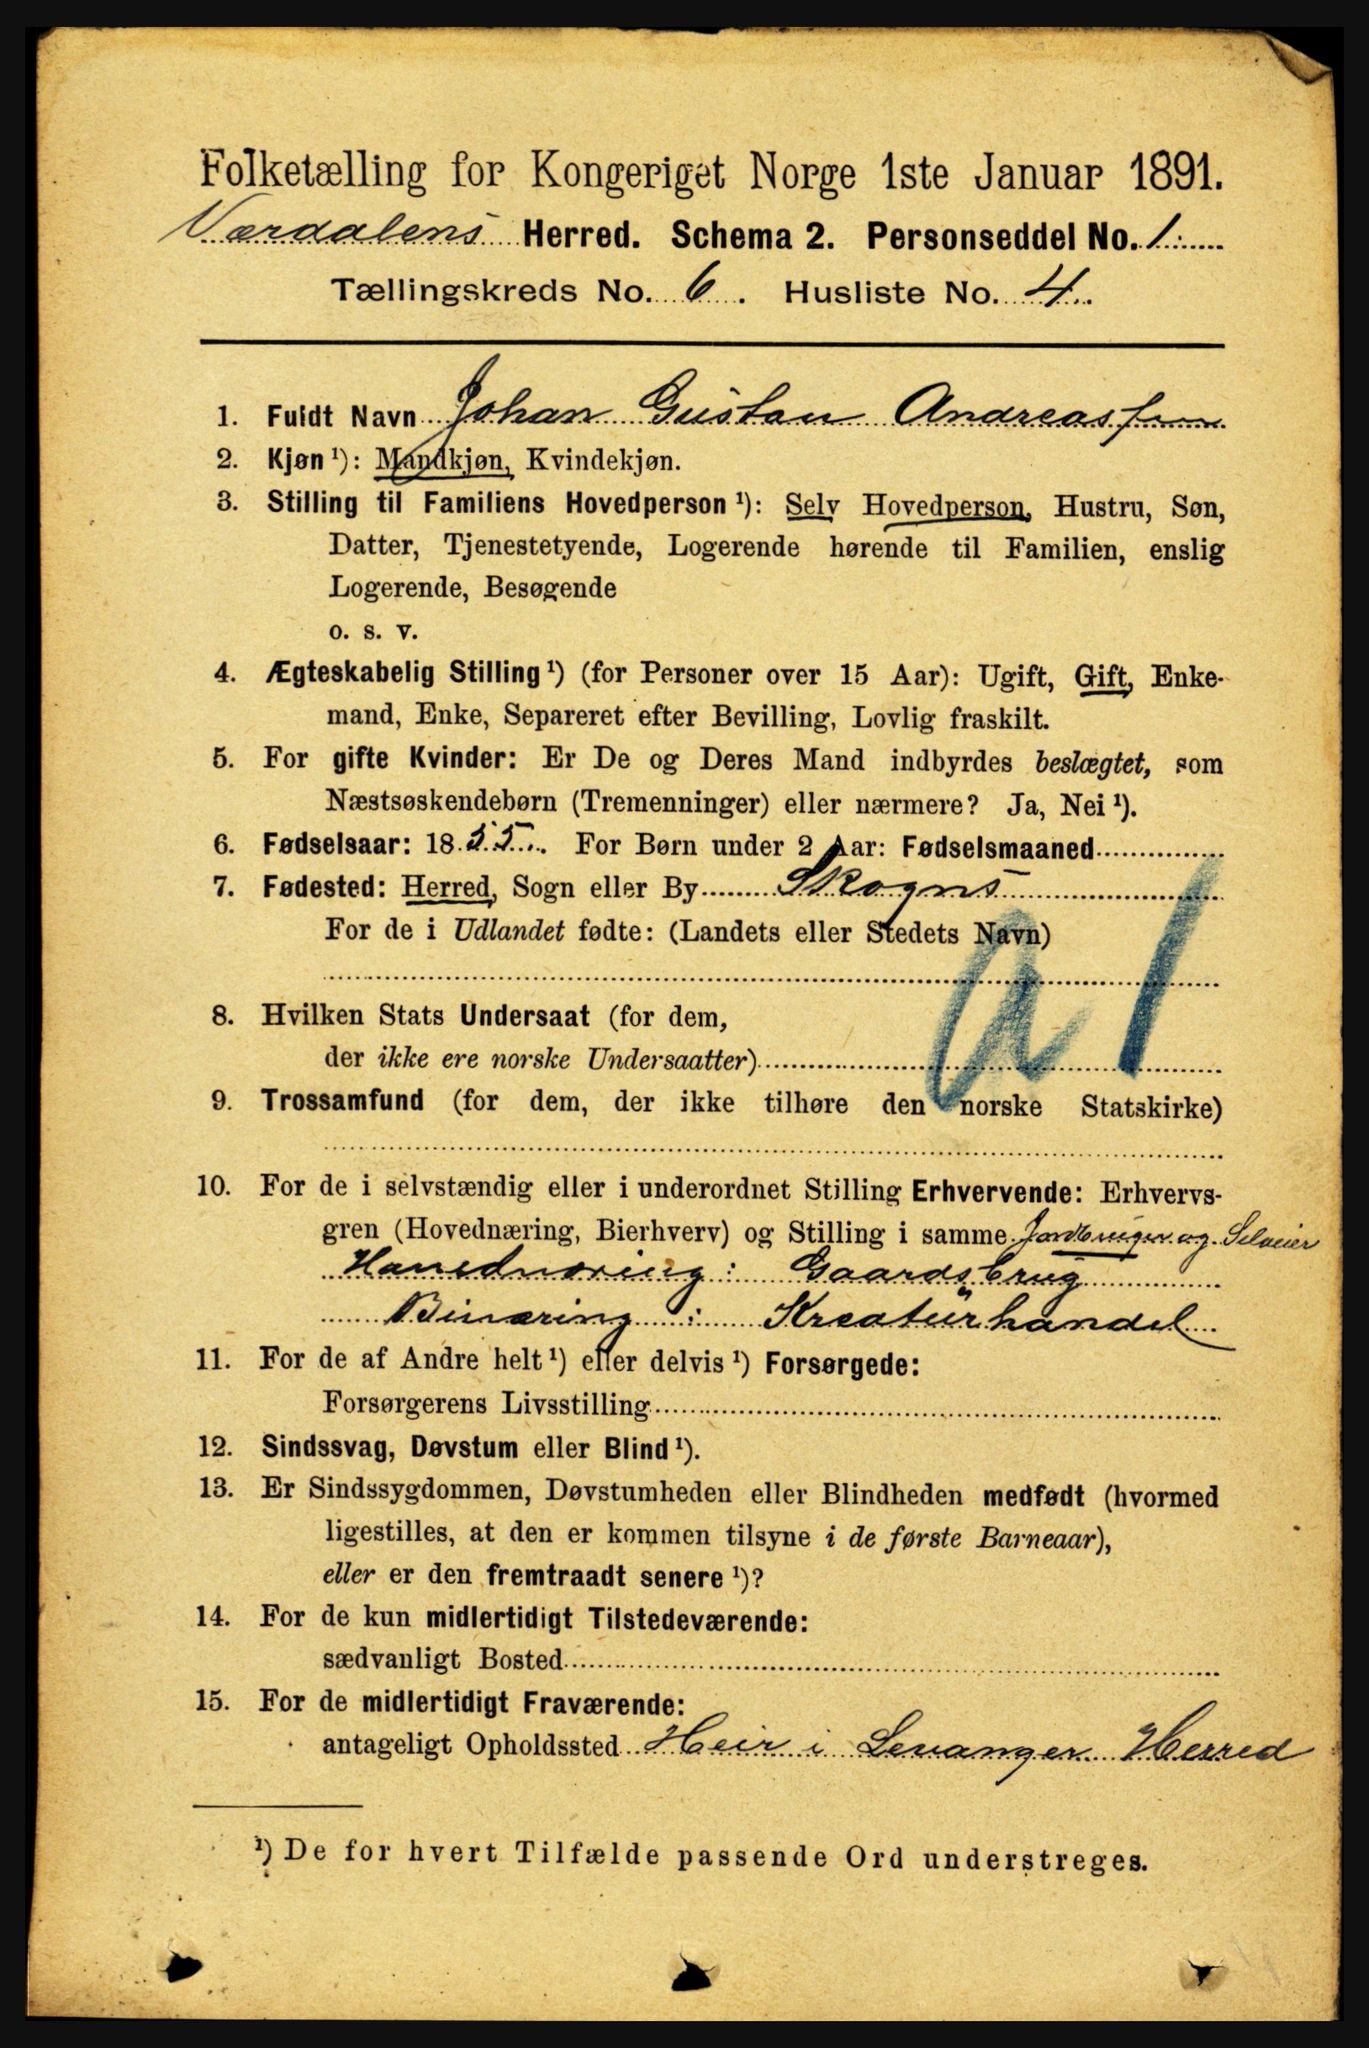 Folketælling for Kongeriget Norge 1ste Januar 1891.
Værdalens Herred. Schema 2. Personseddel No. 1.
Tællingskreds No. 6. Husliste No. 4.
1. Fuldt Navn Johan Gustav Andreassen
2. Kjøn ¹): Mandkjøn, Kvindekjøn.
3. Stilling til Familiens Hovedperson ¹): Selv Hovedperson, Hustru, Søn,
Datter, Tjenestetyende, Logerende hørende til Familien, enslig
Logerende, Besøgende
o. s. v.
4. Ægteskabelig Stilling ¹) (for Personer over 15 Aar): Ugift, Gift, Enke-
mand, Enke, Separeret efter Bevilling, Lovlig fraskilt.
5. For gifte Kvinder: Er De og Deres Mand indbyrdes beslægtet, som
Næstsøskendebørn (Tremenninger) eller nærmere? Ja, Nei ¹).
6. Fødselsaar: 1855. For Børn under 2 Aar: Fødselsmaaned
7. Fødested: Herred, Sogn eller By Skogns
For de i Udlandet fødte: (Landets eller Stedets Navn)
a 1
8. Hvilken Stats Undersaat (for dem,
der ikke ere norske Undersaatter)
9. Trossamfund (for dem, der ikke tilhøre den norske Statskirke)
10. For de i selvstændig eller i underordnet Stilling Erhvervende: Erhvervs-
gren (Hovednæring, Bierhverv) og Stilling i samme Jordbruger og Selveier
Hovednæring: Gaardsbrug
Binæring: Kreaturhandel
11. For de af Andre helt ¹) eller delvis ¹) Forsørgede:
Forsørgerens Livsstilling
12. Sindssvag, Døvstum eller Blind ¹).
13. Er Sindssygdommen, Døvstumheden eller Blindheden medfødt (hvormed
ligestilles, at den er kommen tilsyne i de første Barneaar),
eller er den fremtraadt senere ¹)?
14. For de kun midlertidigt Tilstedeværende:
sædvanligt Bosted
15. For de midlertidigt Fraværende:
antageligt Opholdssted Heir i Levanger Herred
¹) De for hvert Tilfælde passende Ord understreges.